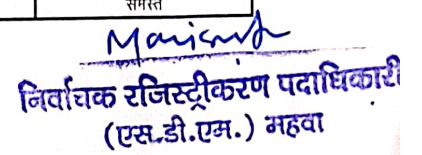 समस्त
निर्वाचक रजिस्ट्रीकरण पदाधिकारी
(एस.डी.एम.) महवा